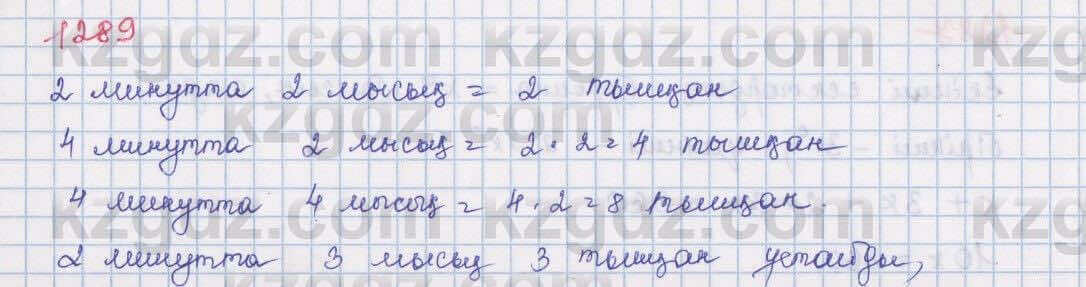 1289
2 минутта 2 мысық = 2 тышқан
4 минутта 2 мысық = 2 · 2 = 4 тышқан
4 минутта 4 мысық = 4 · 2 = 8 тышқан.
2 минутта 3 мысық 3 тышқан ұстайды,
kzgdz.com kzgdz.com
kzgdz.com
kzgdz.com kzgdz.com
kzgdz.com